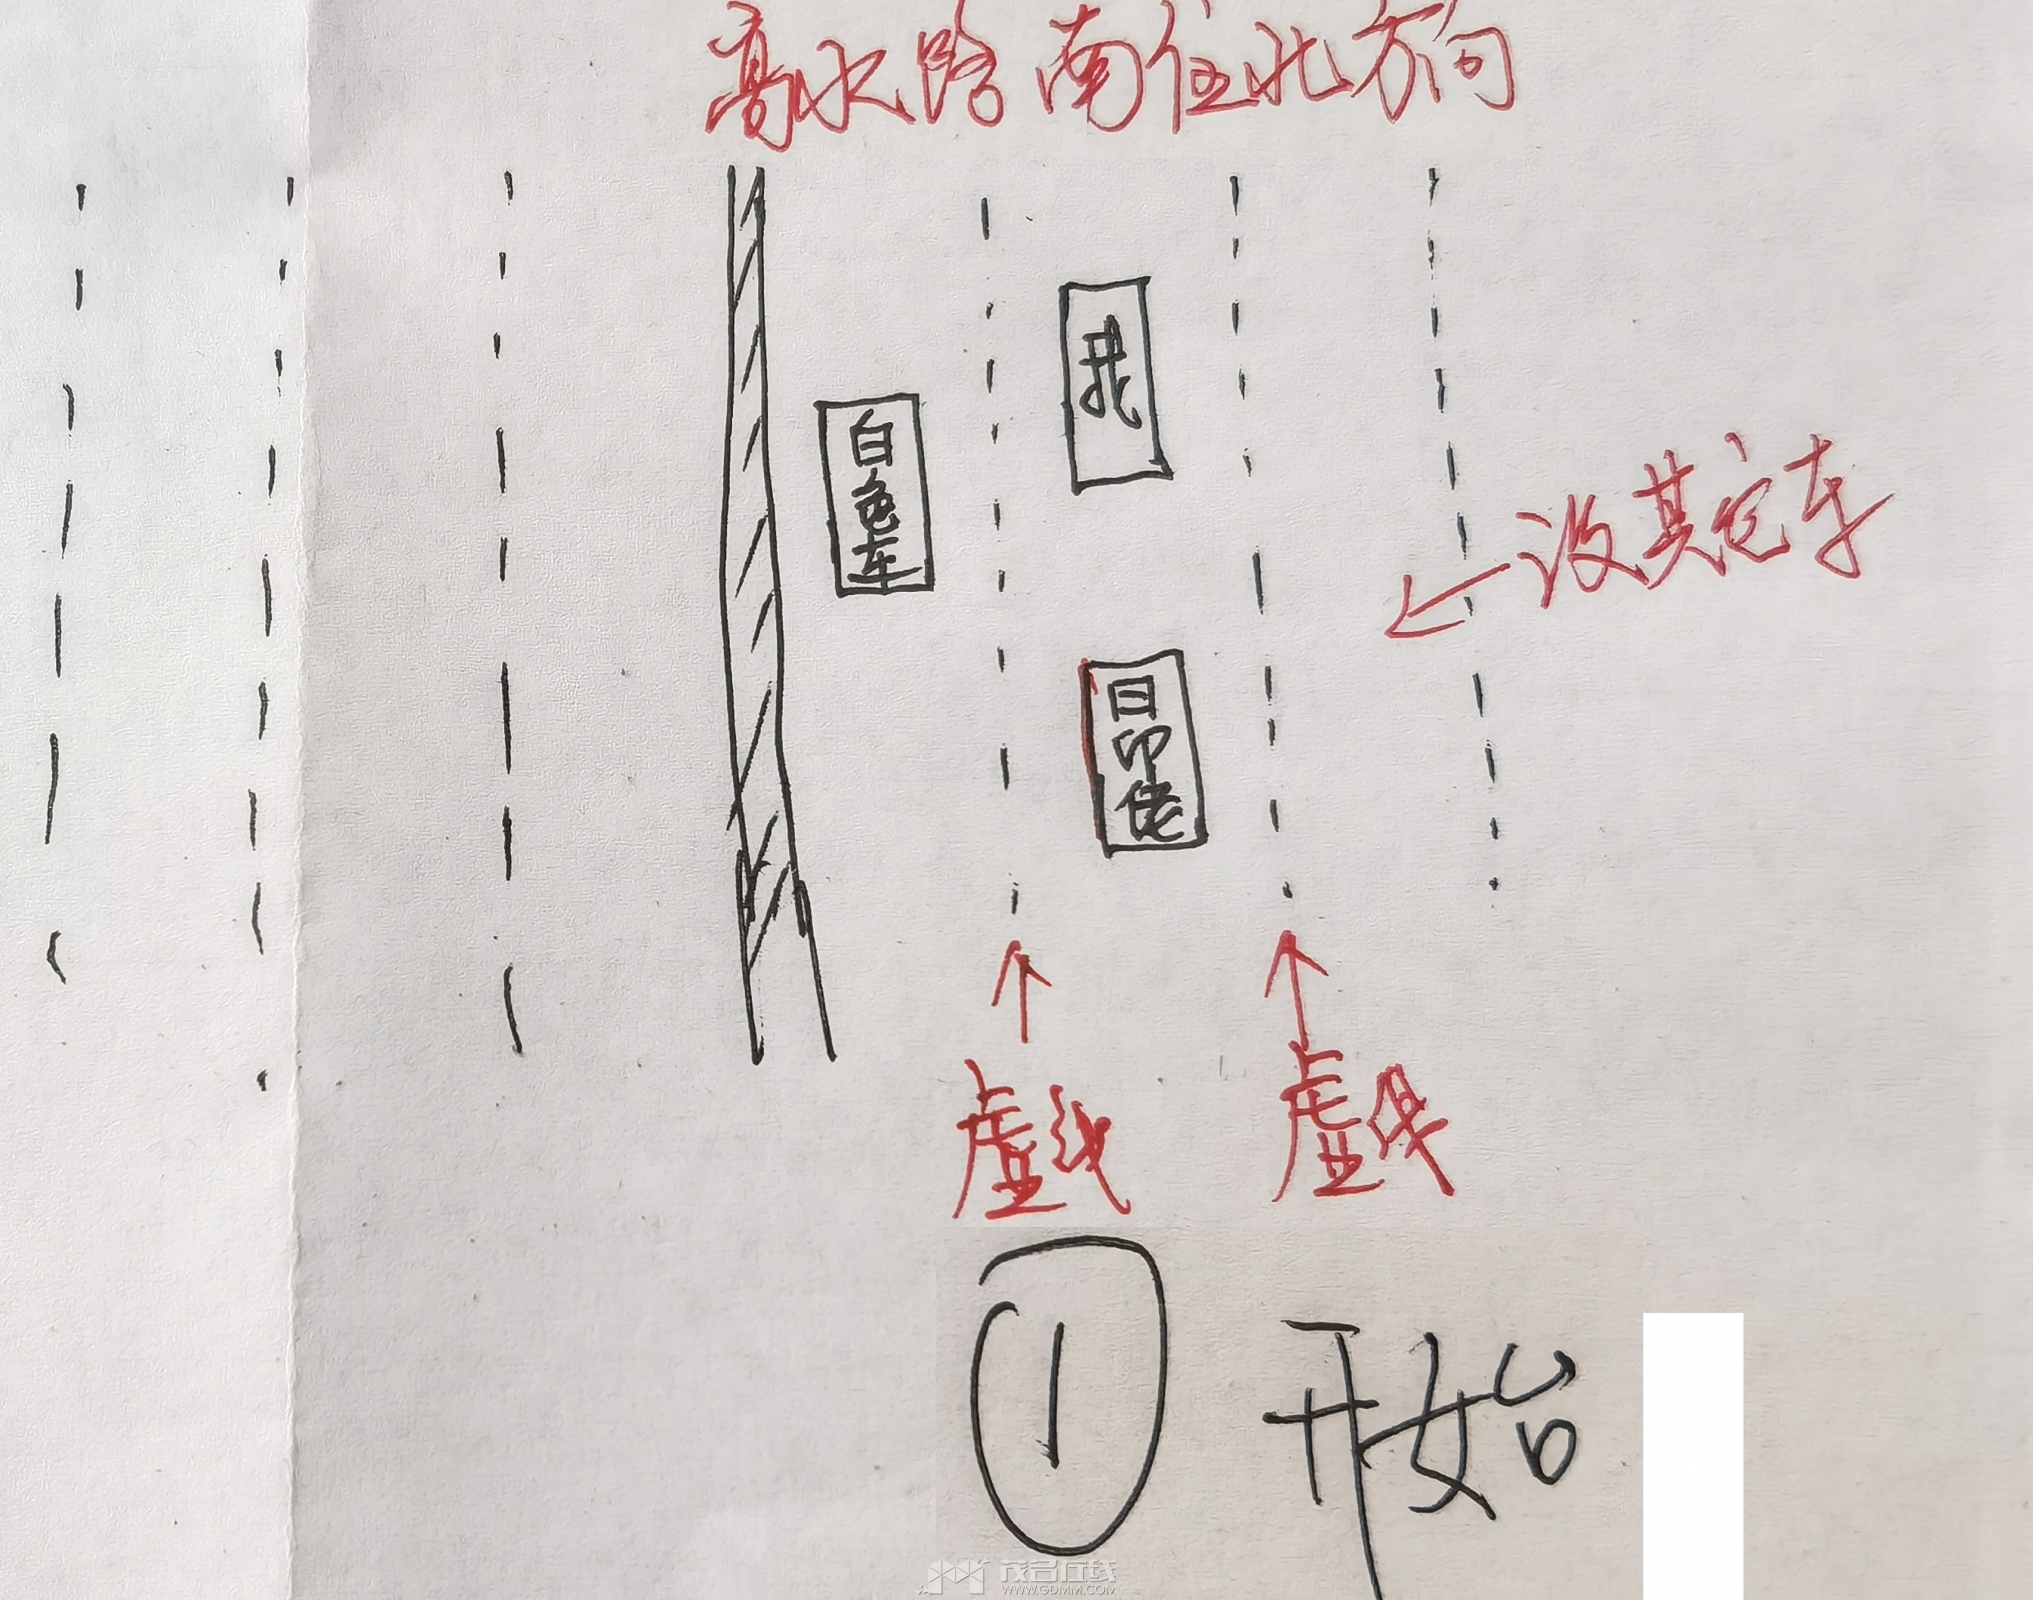 高水路南住北方向
我
白色车
没其它车
日印佬
虚线
虚线
1
开始
茂名在线
WWW.GDMM.COM